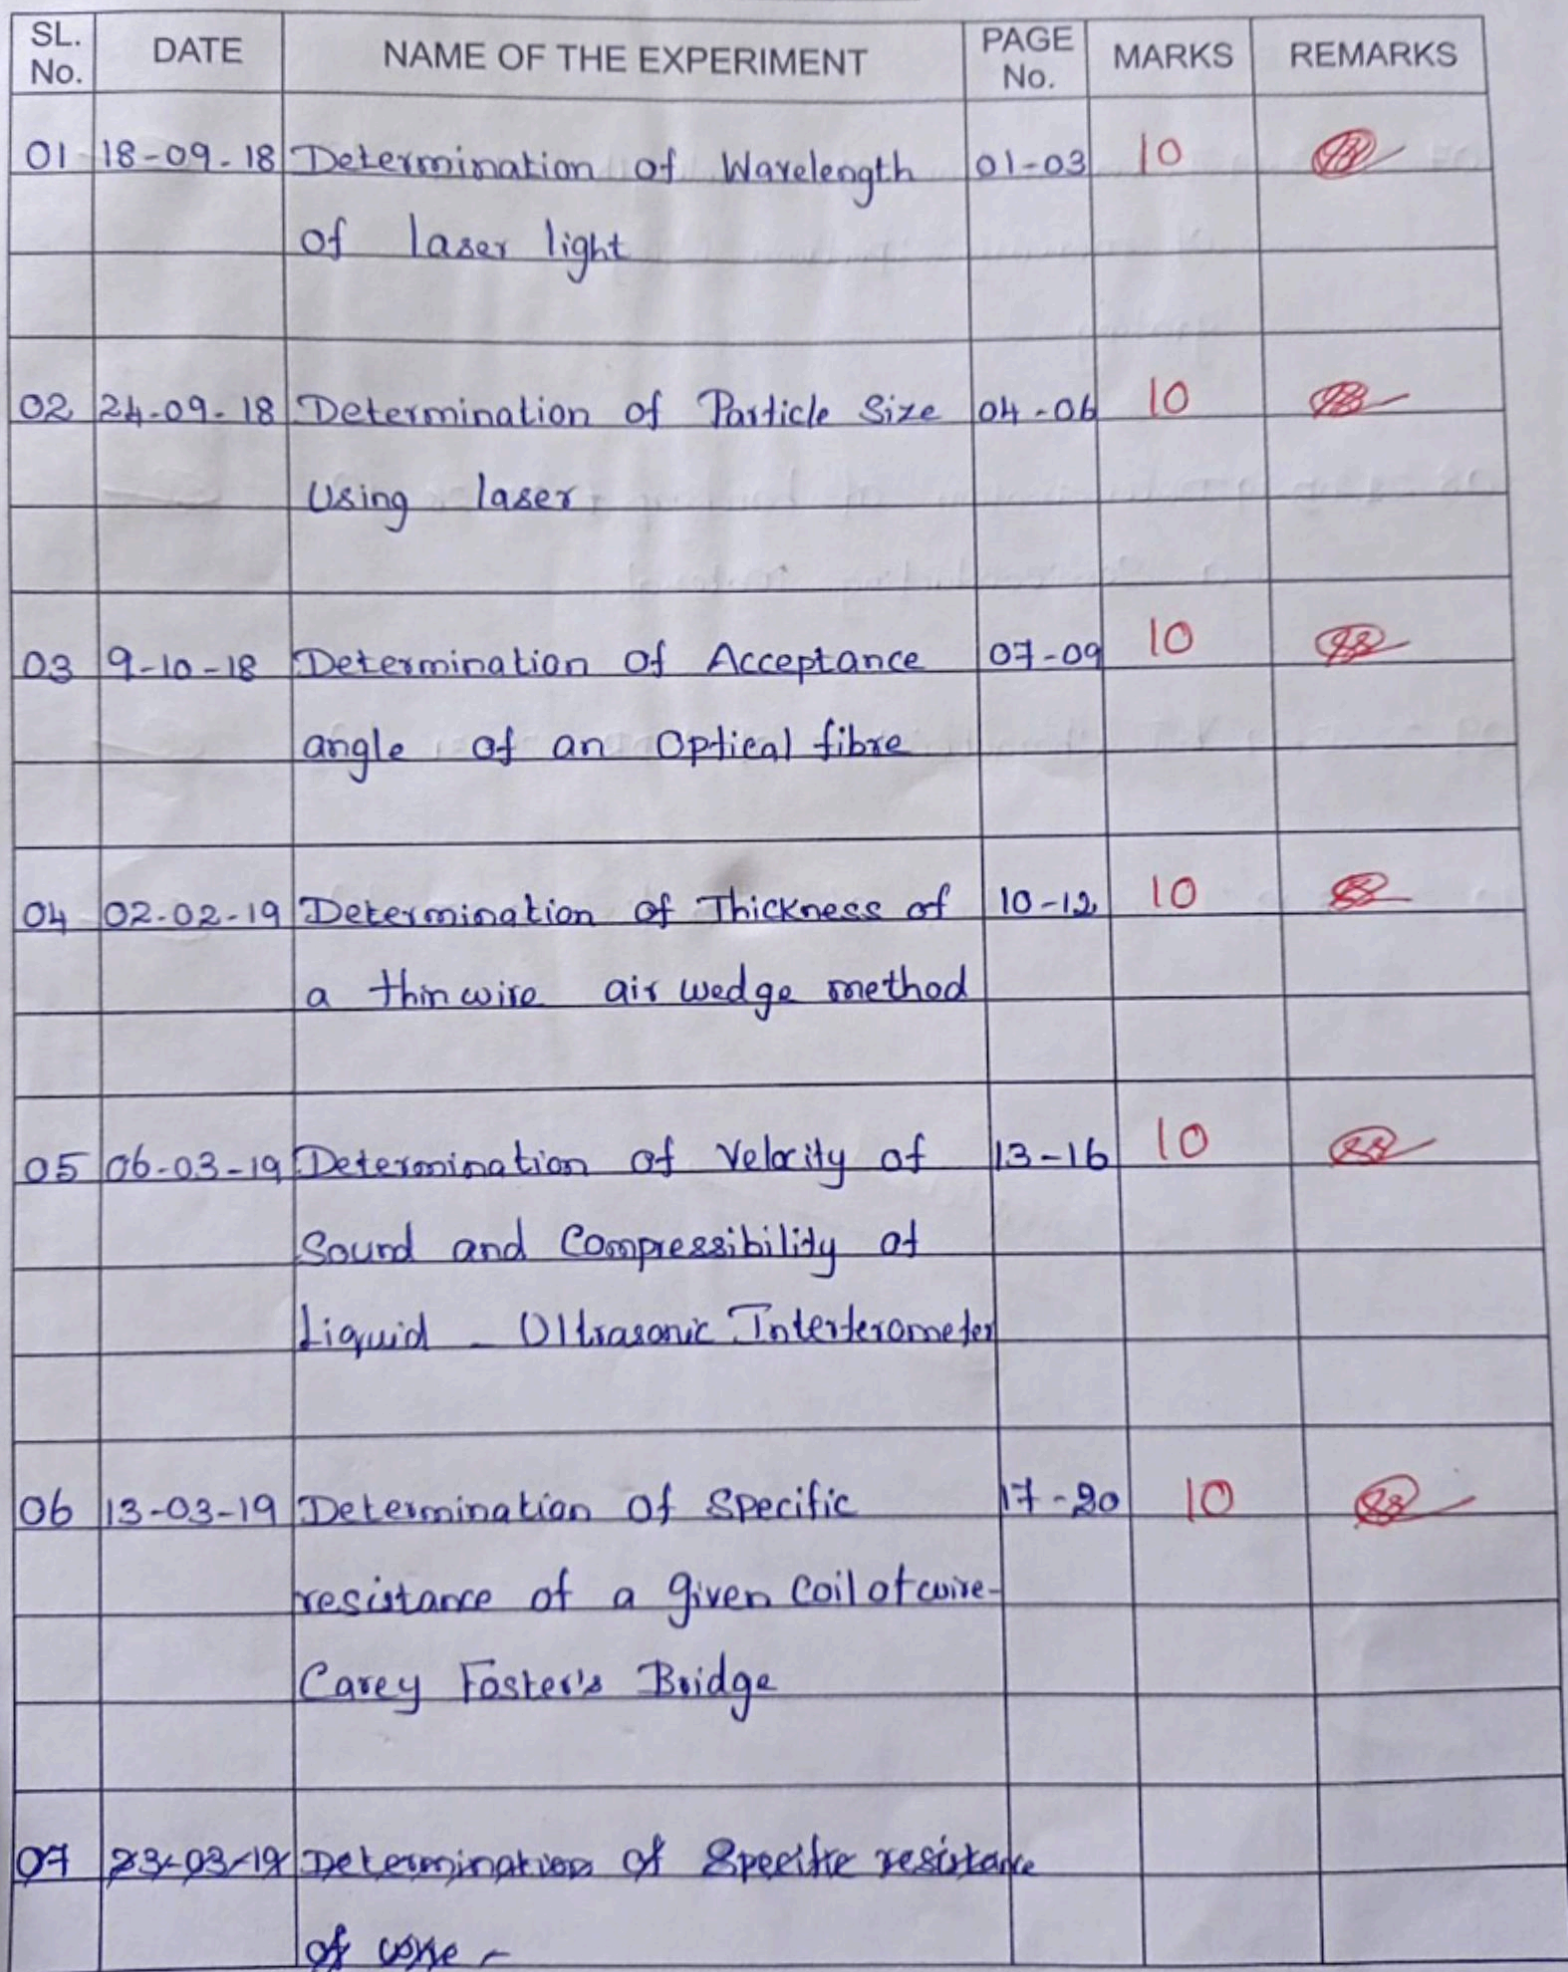 SL. No. DATE NAME OF THE EXPERIMENT PAGE No. MARKS REMARKS
01 18-09-18 Determination of Wavelength 01-03 10
of laser light
02 24-09-18 Determination of Particle Size 04-06 10
Using laser
03 9-10-18 Determination of Acceptance 07-09 10
angle of an Optical fibre
04 02-02-19 Determination of Thickness of 10-12 10
a thin wire air wedge method
05 06-03-19 Determination of Velocity of 13-16 10
Sound and Compressibility of
Liquid - Ultrasonic Interferometer
06 13-03-19 Determination of Specific 17-20 10
resistance of a given Coil of wire-
Carey Foster's Bridge
07 23-03-19 Determination of Specific resistance
of wire -